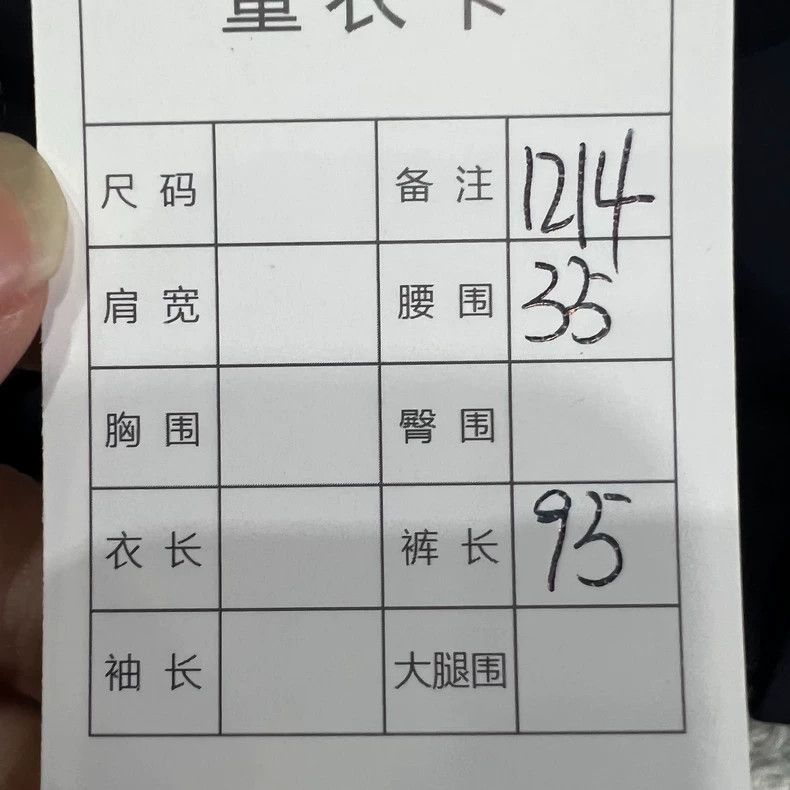 量衣卡
尺码 备注 1214
肩宽 腰围 35
胸围 臀围
衣长 裤长 95
袖长 大腿围